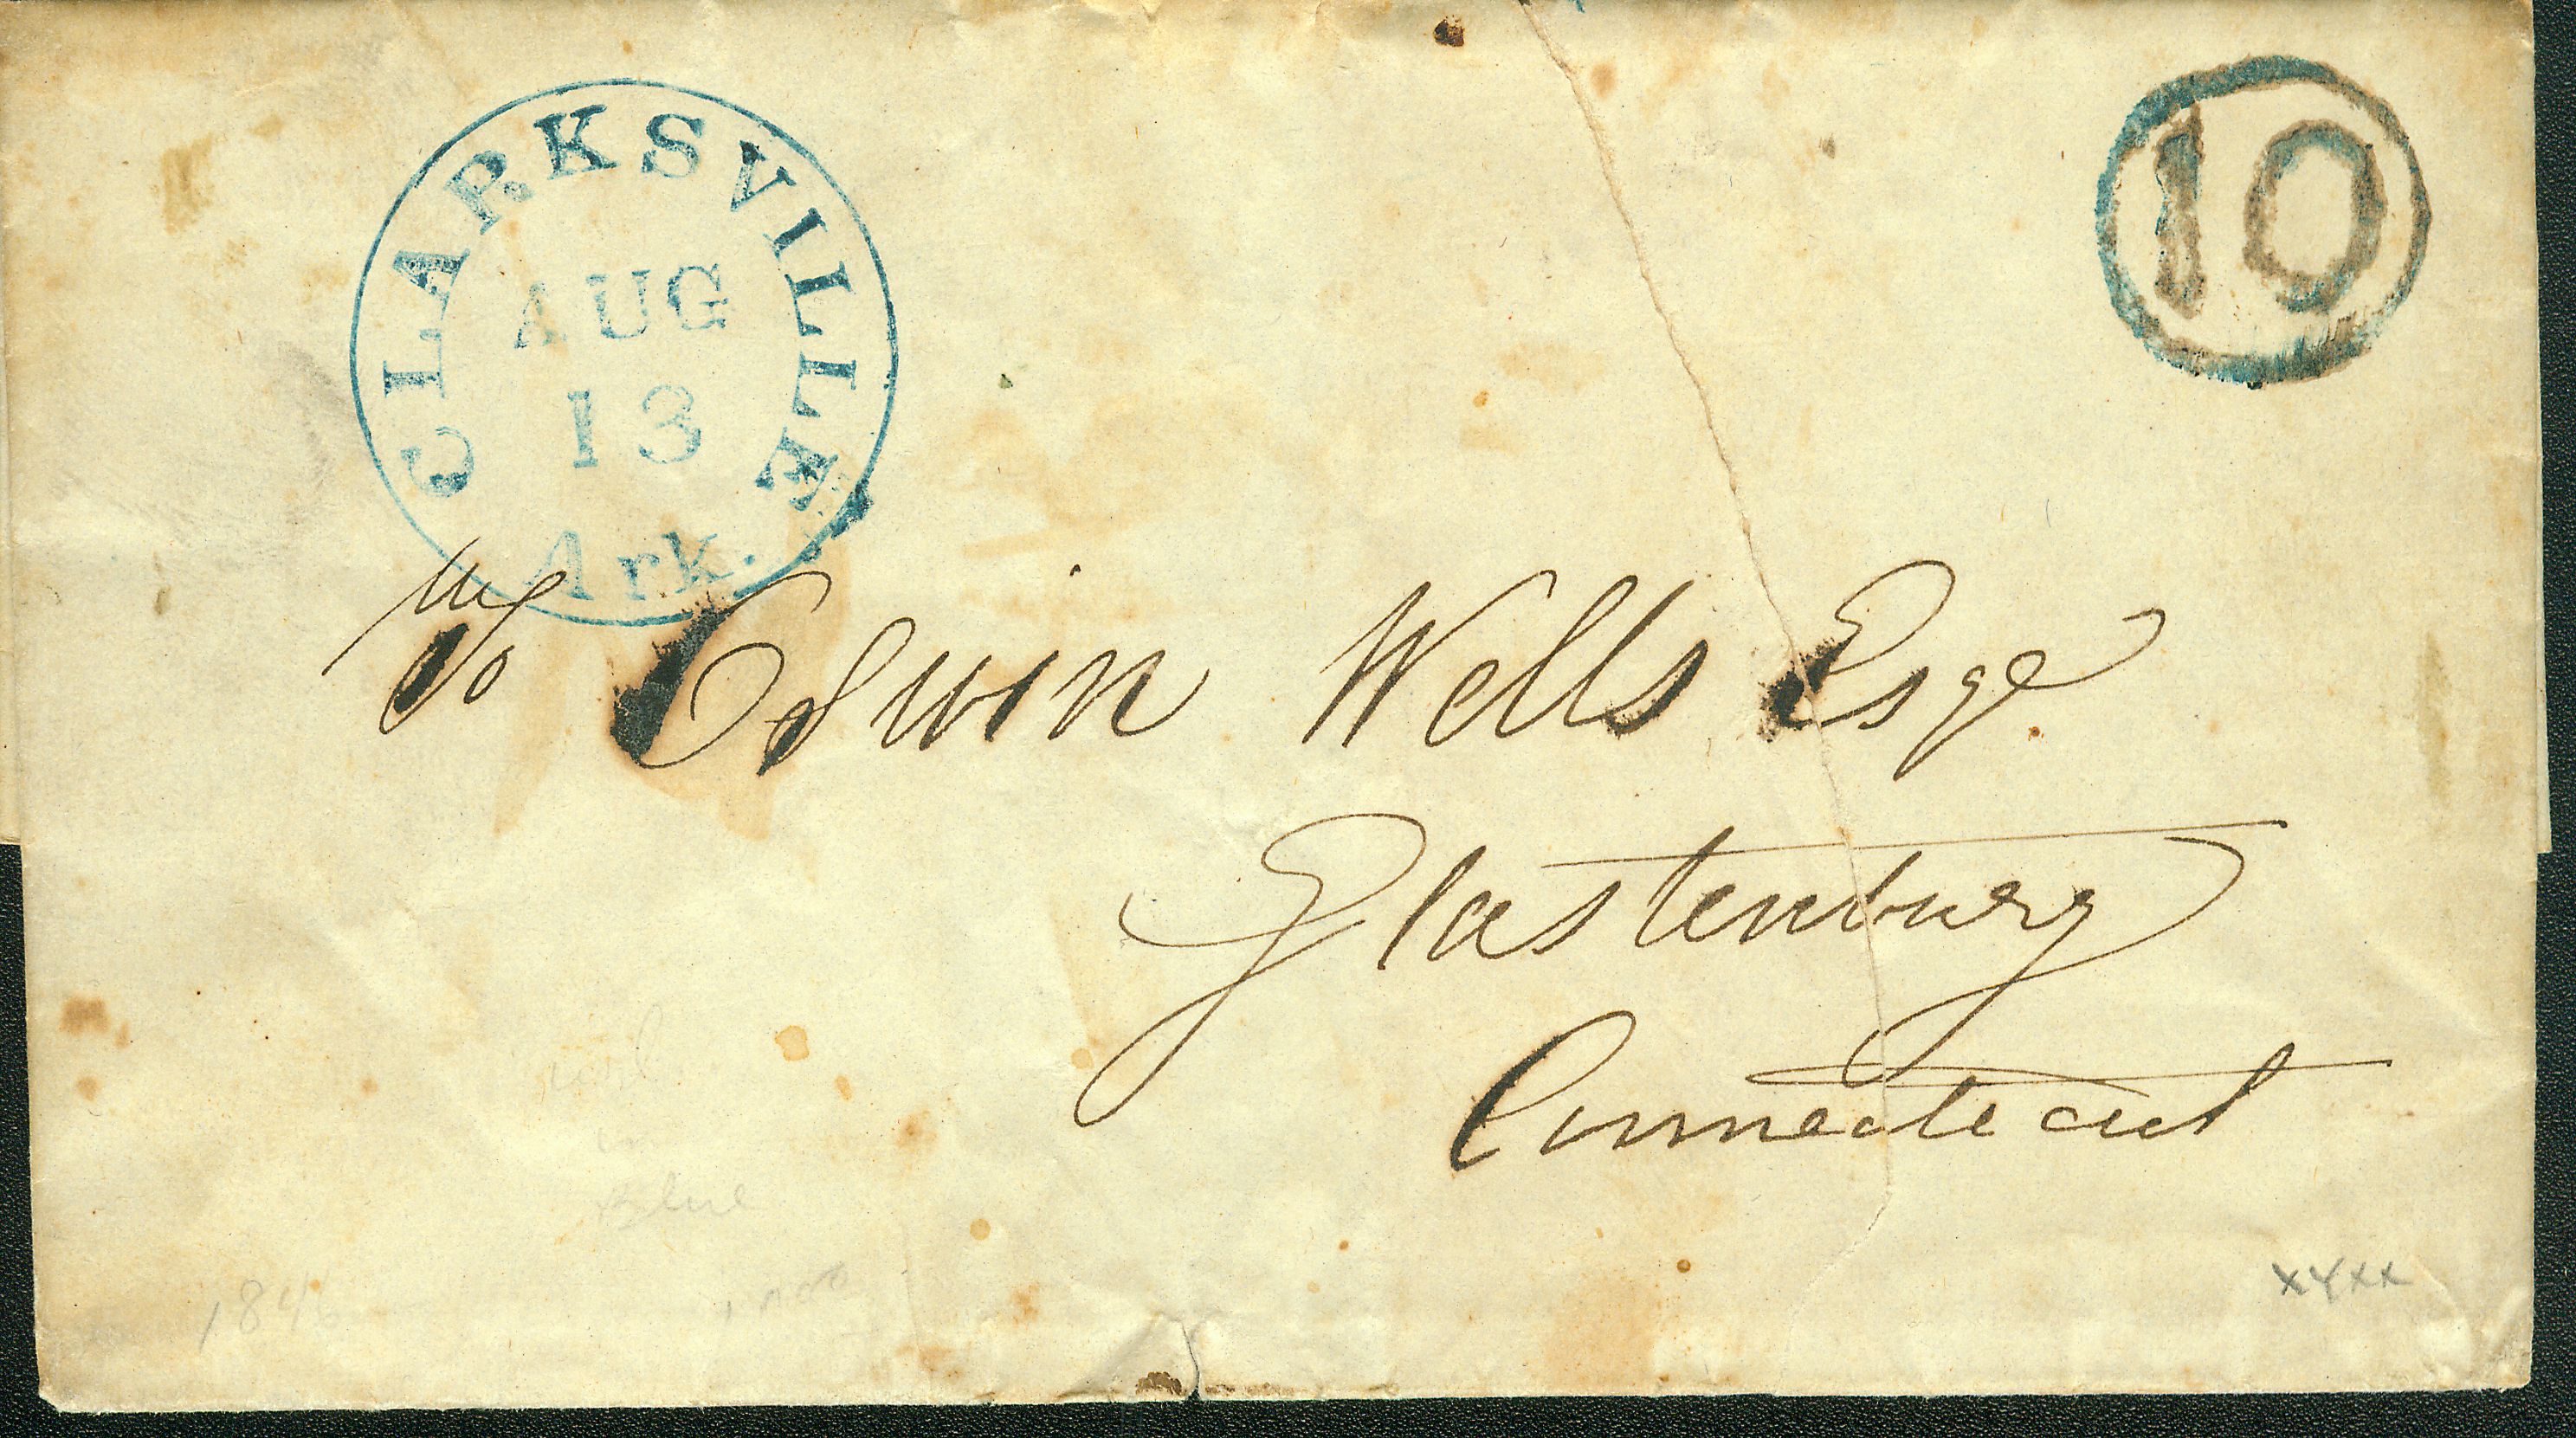 CLARKSVILLE
AUG
13
Ark.
10
Edwin Wells Esqe
Glastenbury
Connecticut
Blue
1846
xyxx